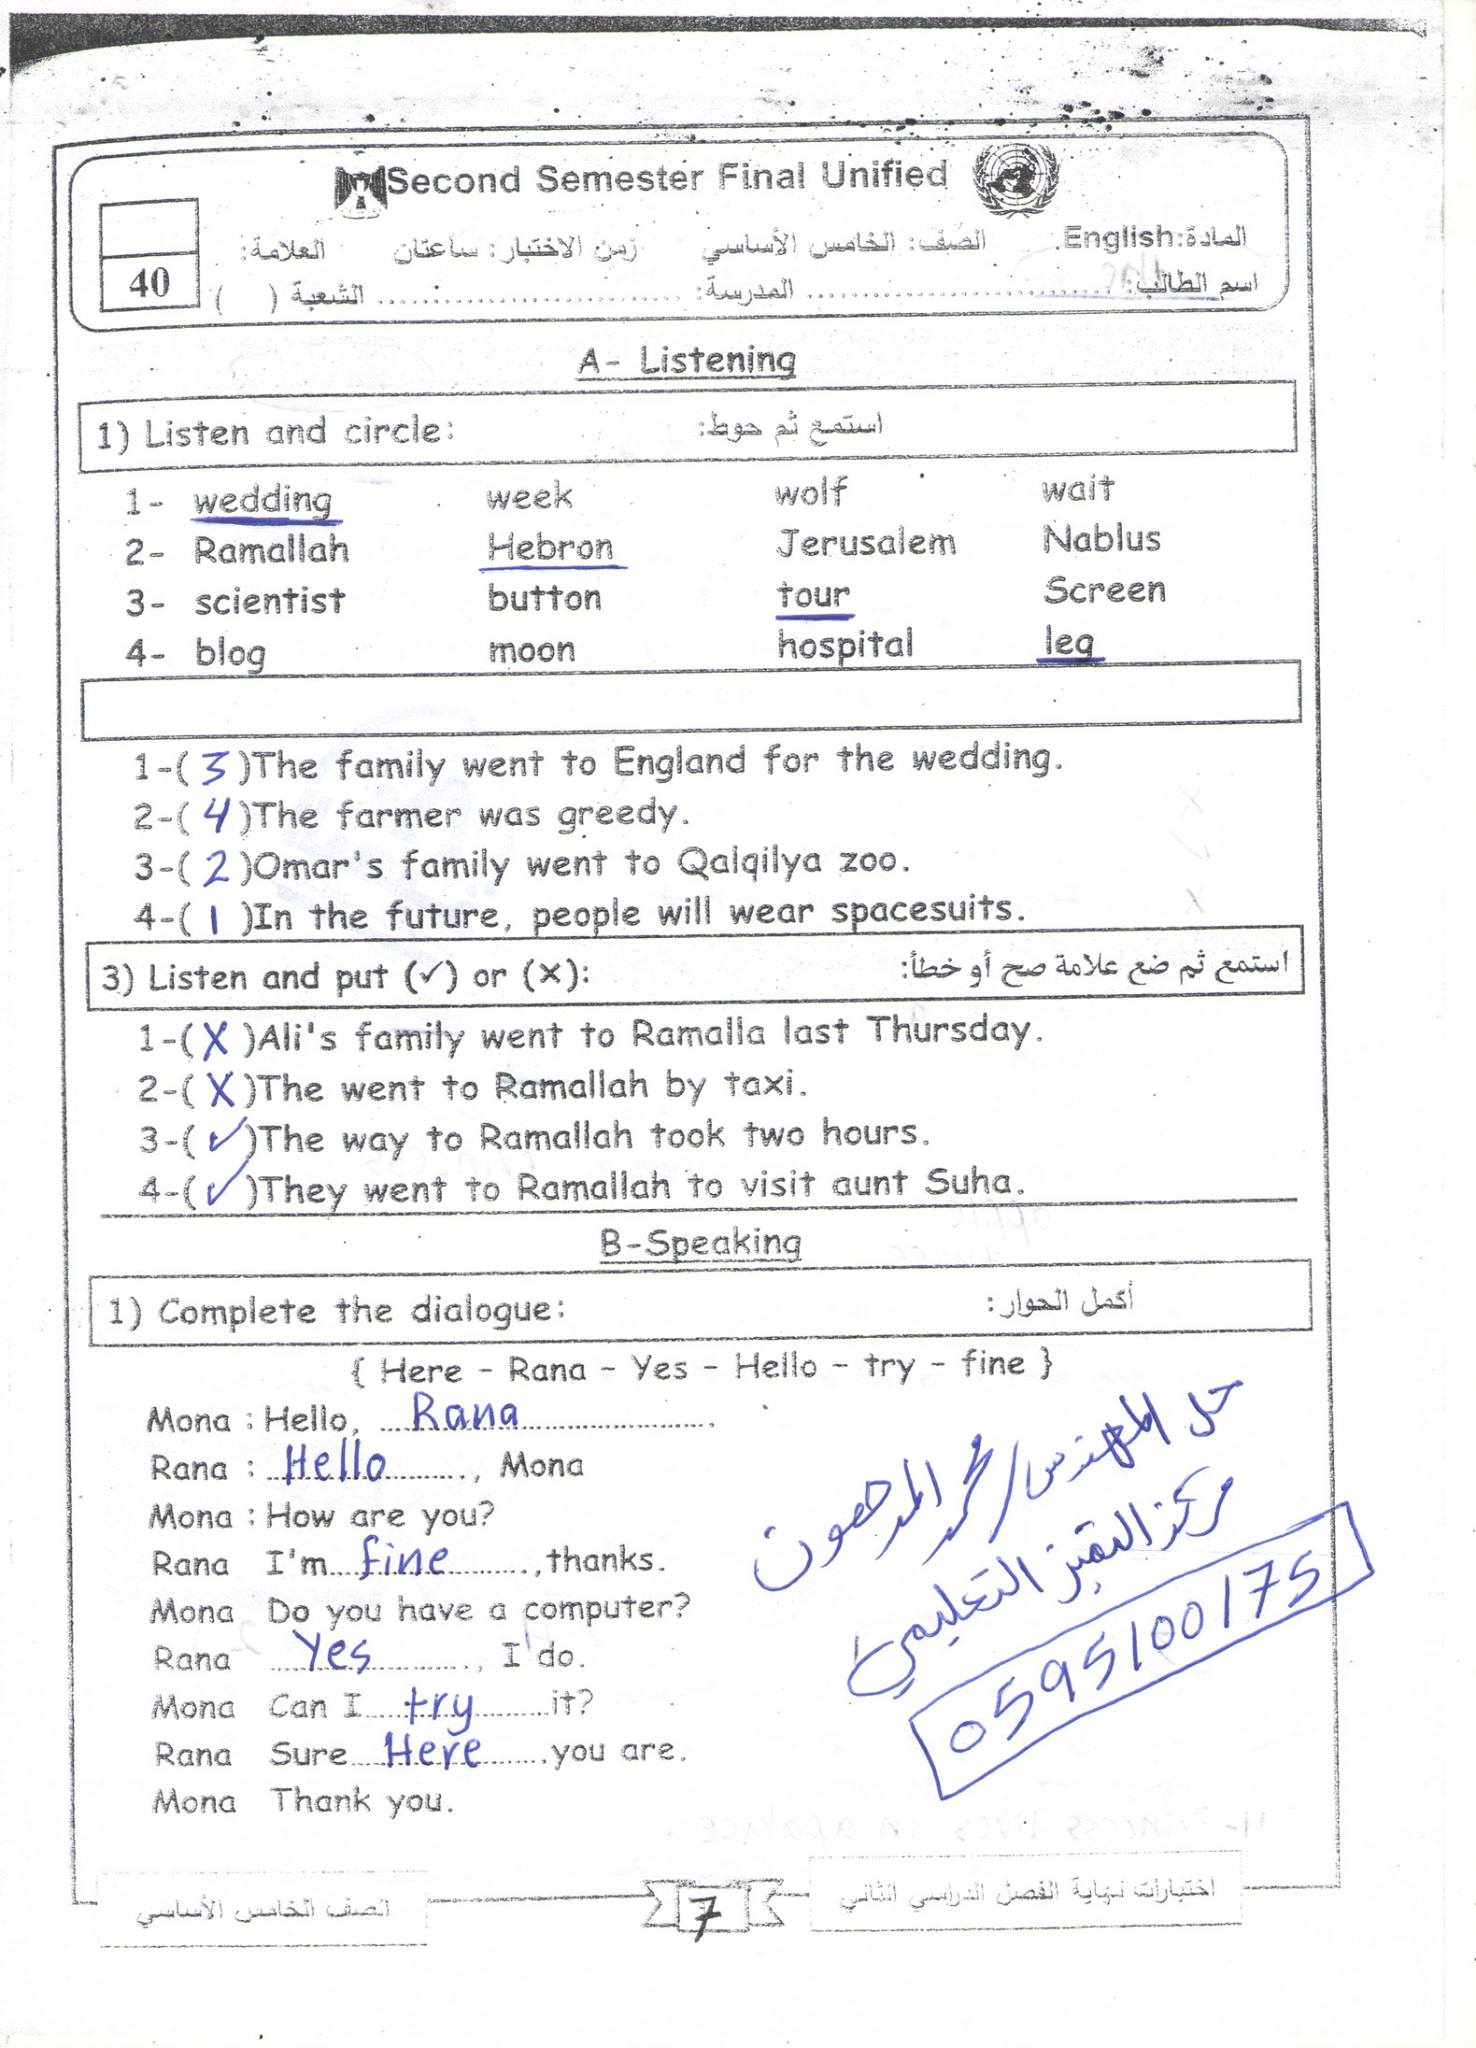 Second Semester Final Unified
المادة: English. الصف: الخامس الأساسي زمن الاختبار: ساعتان العلامة:
اسم الطالب: ........................ المدرسة: ........................ الشعبة ( )
40
A- Listening
1) Listen and circle: استمع ثم حوط:
1- wedding week wolf wait
2- Ramallah Hebron Jerusalem Nablus
3- scientist button tour Screen
4- blog moon hospital leg
1-( 3 )The family went to England for the wedding.
2-( 4 )The farmer was greedy.
3-( 2 )Omar's family went to Qalqilya zoo.
4-( 1 )In the future, people will wear spacesuits.
3) Listen and put (✓) or (×): استمع ثم ضع علامة صح أو خطأ:
1-( X )Ali's family went to Ramalla last Thursday.
2-( X )The went to Ramallah by taxi.
3-( ✓ )The way to Ramallah took two hours.
4-( ✓ )They went to Ramallah to visit aunt Suha.
B-Speaking
1) Complete the dialogue: أكمل الحوار:
{ Here - Rana - Yes - Hello - try - fine }
Mona : Hello, Rana.
Rana : Hello, Mona
Mona : How are you?
Rana I'm fine, thanks.
Mona Do you have a computer?
Rana Yes, I do.
Mona Can I try it?
Rana Sure Here you are.
Mona Thank you.
حل المهندس/محمد المدهون
مركز التميز التعليمي
0595100175
اختبارات نهاية الفصل الدراسي الثاني
7
الصف الخامس الأساسي